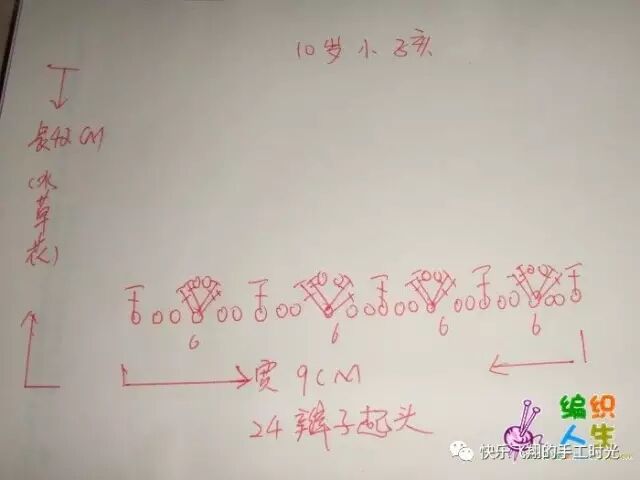 10岁小孩
长42CM
(水草花)
6 6 6 6
宽9CM
24辫子起头
编织
人生
快乐飞翔的手工时光